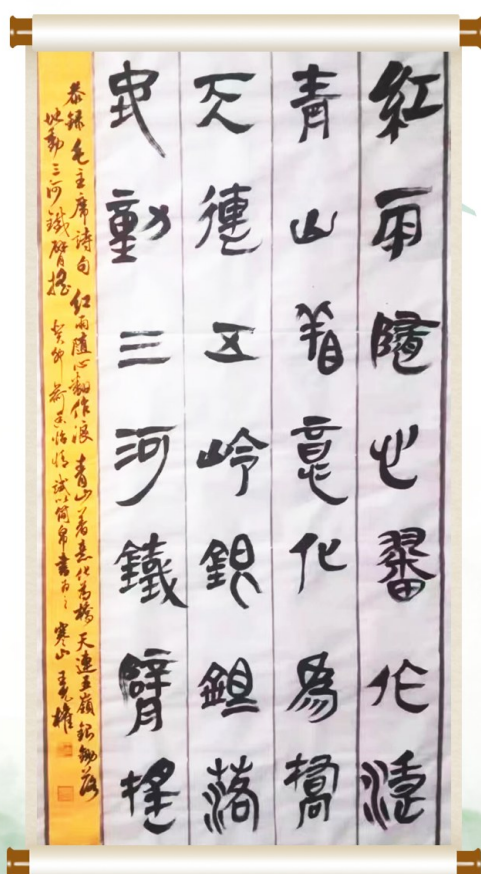 紅雨隨心翻作浪
青山着意化為橋
天連五岭銀鉏落
地動三河鐵臂搖
恭録毛主席詩句 红雨随心翻作浪 青山着意化为橋 天連五嶺銀鋤落
地動三河鐵臂搖 癸卯 怡情 試以简帛書为之 寒山 王